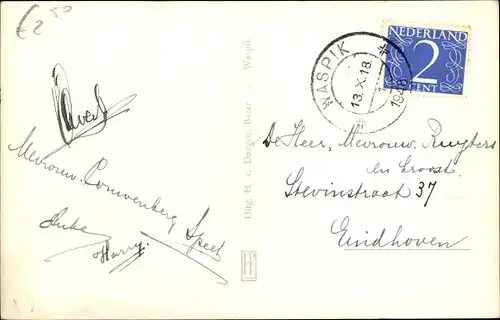 £ 2 50
NEDERLAND
2
CENT
WASPIK
13.X.18.
1948
Mevrouw. Pouwenberg
Speet
Anke
Harry.
Uitg. H. v. Dongen, Bazar - Waspik
De Heer, Mevrouw. Ruyters
en kroost.
Stevinstraat 37
Eindhoven